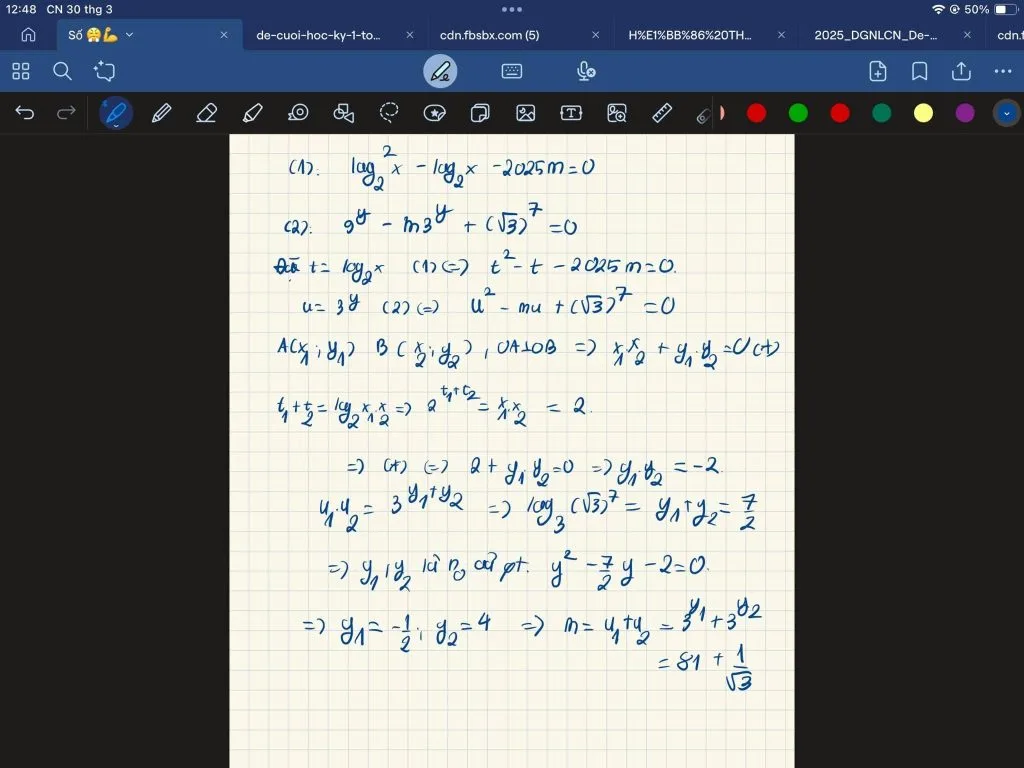 12:48 CN 30 thg 3
50%
Số 😤💪
de-cuoi-hoc-ky-1-to...
cdn.fbsbx.com (5)
H%E1%BB%86%20TH...
2025_DGNLCN_De-...
cdn.f
(1). log₂²x - log₂x - 2025m = 0
(2). 9^y - m3^y + (√3)^7 = 0
t = log₂x (1) (=) t² - t - 2025m = 0.
u = 3^y (2) (=) u² - mu + (√3)^7 = 0
A(x₁; y₁) B(x₂; y₂), OA⊥OB => x₁.x₂ + y₁.y₂ = 0 (*)
t₁ + t₂ = log₂x₁.x₂ => 2^(t₁+t₂) = x₁.x₂ = 2.
=> (*) (=) 2 + y₁.y₂ = 0 => y₁.y₂ = -2.
u₁.u₂ = 3^(y₁+y₂) => log₃(√3)^7 = y₁ + y₂ = 7/2
=> y₁, y₂ là n₀ của pt. y² - 7/2 y - 2 = 0.
=> y₁ = -1/2; y₂ = 4 => m = u₁ + u₂ = 3^y₁ + 3^y₂
= 81 + 1/√3